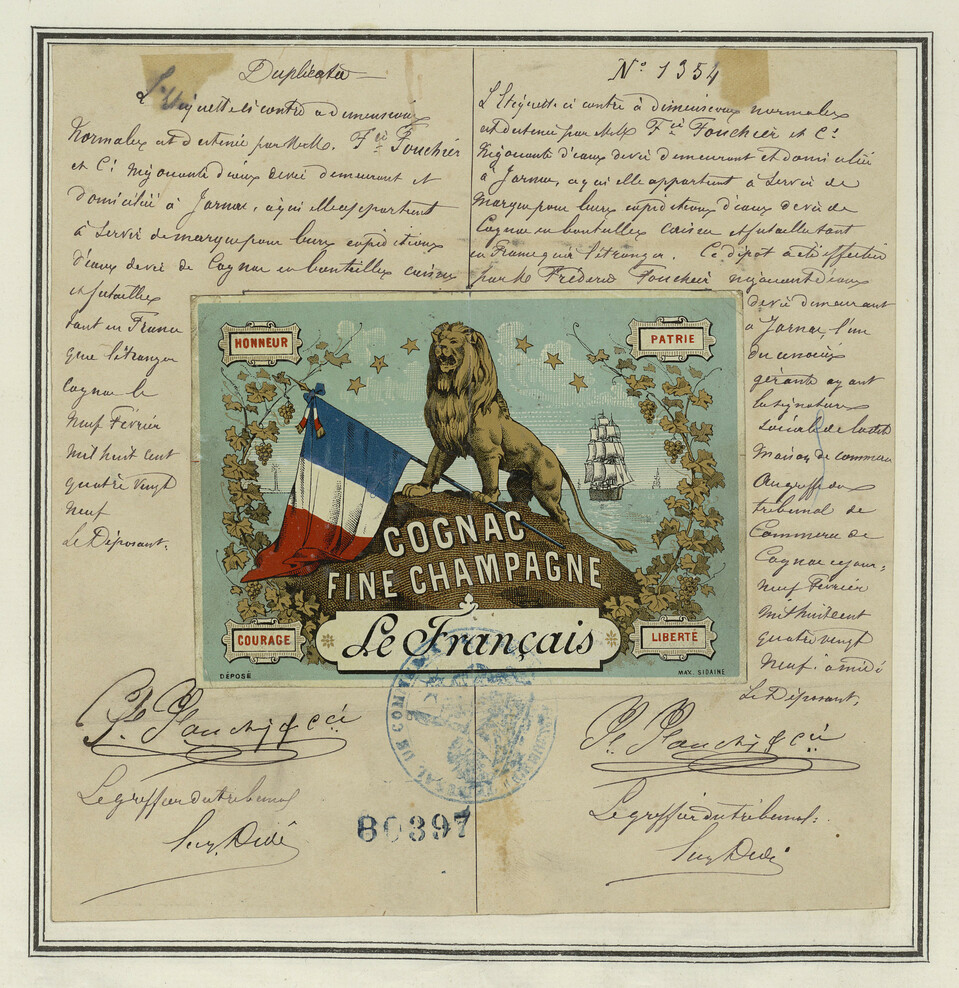 Duplicata
L'Etiquette ci contre a dimensions
normales est destinée par M.M. Fic Fouchier
et Cie Négociants d'eaux de vie demeurant et
domiciliés à Jarnac, à qui elle appartient
à servir de marque pour leurs expéditions
d'eaux de vie de Cognac en bouteilles caisses
et futailles
tant en France
que l'étranger
Cognac le
Neuf Février
mil huit cent
quatre vingt
neuf
Le Déposant.
Le greffier du tribunal
No 1354
L'Etiquette ci contre à dimensions normales
est destinée par M.M. Fic Fouchier et Cie
Négociants d'eaux de vie demeurant et domiciliés
à Jarnac, à qui elle appartient à servir de
marque pour leurs expéditions d'eaux de vie de
Cognac en bouteilles caisses et futailles tant
en France qu'à l'étranger. Ce dépot a été effectué
par M. Fréderic Fouchier négociant d'eaux
de vie demeurant
à Jarnac, l'un
des associés
gérants ayant
la signature
sociale de la dite
Maison de commerce
Au greffe du
tribunal de
Commerce de
Cognac ce jour:
neuf Février
mil huit cent
quatre vingt
Neuf. à midi
Le Déposant,
Le greffier du tribunal:
HONNEUR
PATRIE
COGNAC
FINE CHAMPAGNE
Le Français
COURAGE
LIBERTÉ
DÉPOSÉ
MAX. SIDAINE
80397